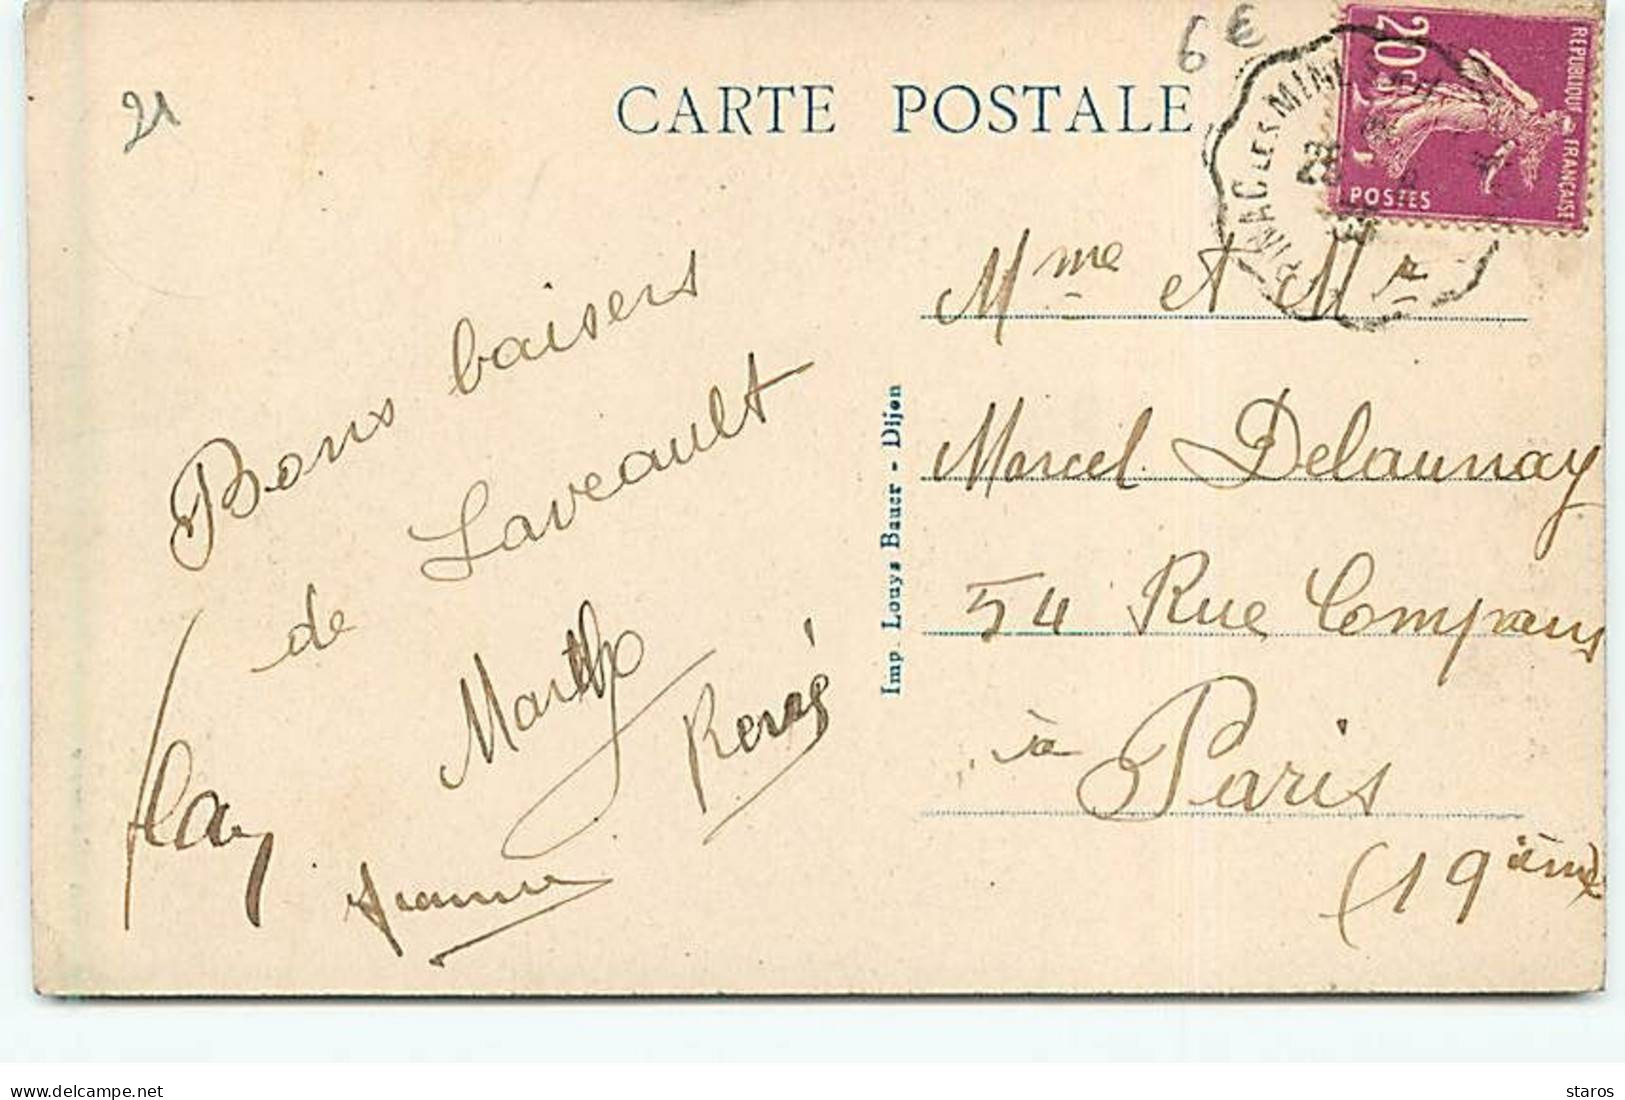 21
6€
CARTE POSTALE
20c
REPUBLIQUE FRANÇAISE
POSTES
Bons baisers
de Laveault
Marthe
René
Jeanne
Imp. Louys Bauer - Dijon
Mme et Mr
Marcel Delaunay
54 Rue Compans
à Paris
(19ième)
delcampe.net
staros